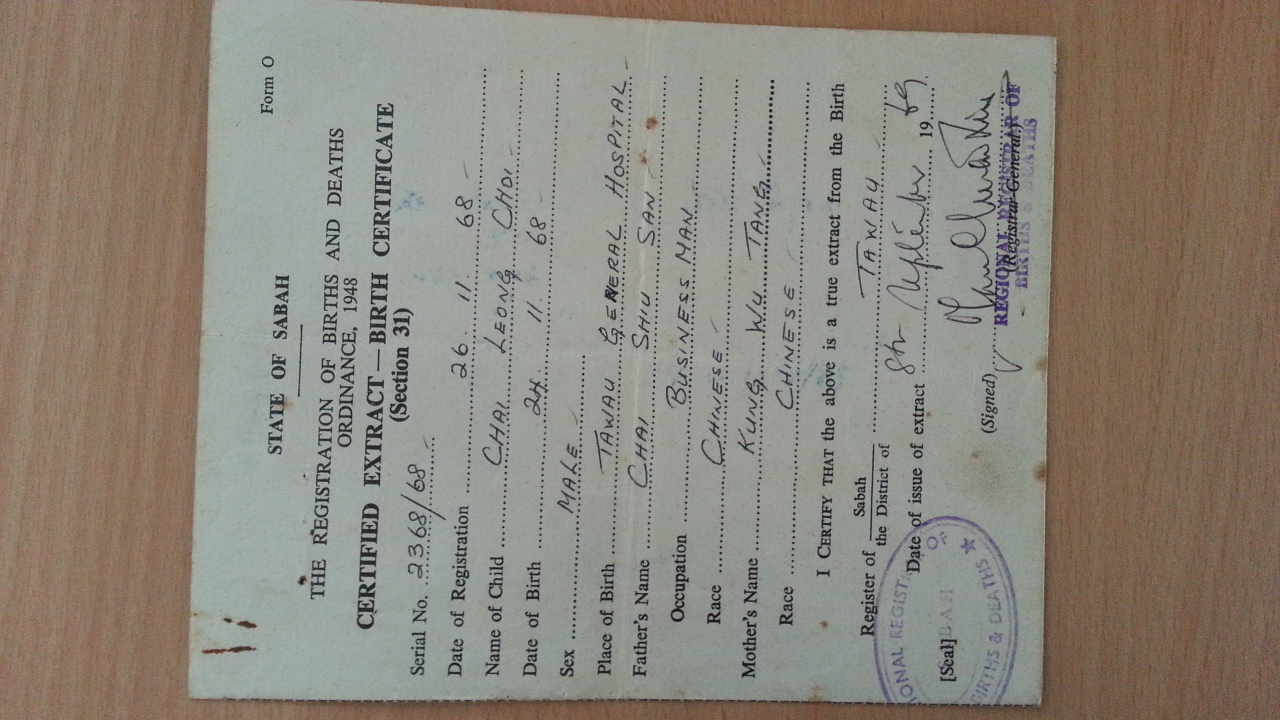 Form O
STATE OF SABAH
THE REGISTRATION OF BIRTHS AND DEATHS
ORDINANCE, 1948
CERTIFIED EXTRACT — BIRTH CERTIFICATE
(Section 31)
Serial No. 2368/68
Date of Registration 26. 11. 68
Name of Child CHAI LEONG CHOI
Date of Birth 24. 11. 68
Sex MALE
Place of Birth TAWAU GENERAL HOSPITAL
Father's Name CHAI SHIU SAN
Occupation BUSINESS MAN
Race CHINESE
Mother's Name KUNG WU TANG
Race CHINESE
I CERTIFY THAT the above is a true extract from the Birth
Register of Sabah / the District of TAWAU
Date of issue of extract 8th September 1969
[Seal]
REGIONAL REGISTRAR OF BIRTHS & DEATHS SABAH
(Signed)
REGIONAL REGISTRAR OF
(Registrar-General.)
BIRTHS & DEATHS